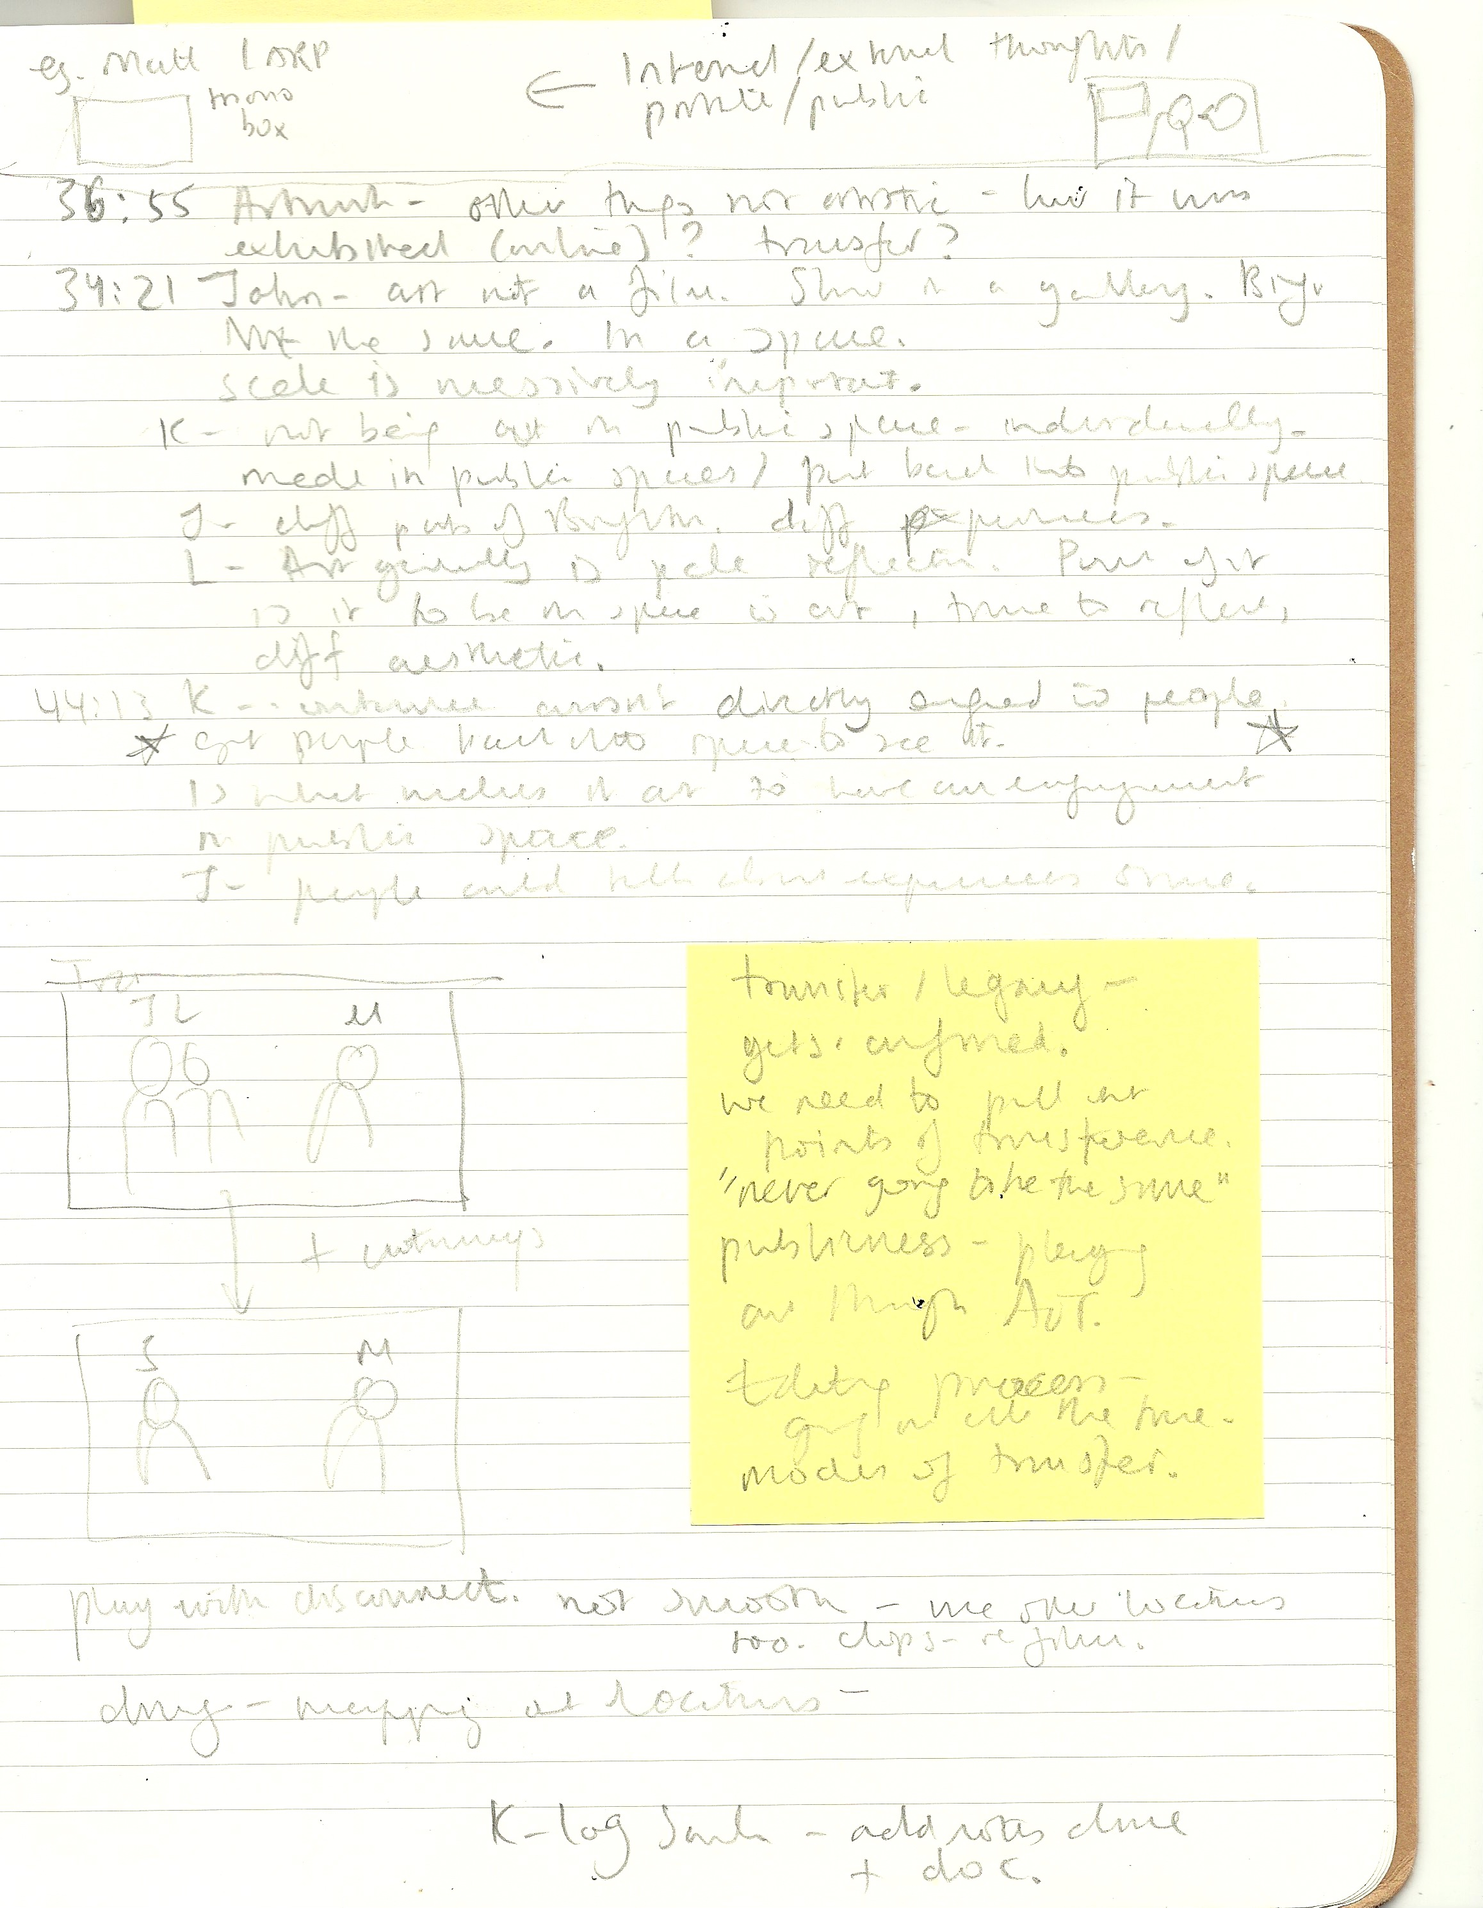 eg. Matt LARP
mono
box
← Internal/external thoughts/
private/public
36:55 Artwork - other things not artistic - how it was
exhibited (online)? transfer?
34:21 John - art not a film. Show in a gallery.
Not the same. In a space.
scale is massively important.
K - not being out in public space - individually -
made in public spaces / put back into public space
J - diff parts of Brighton. diff experiences.
L - Art generally is pale reflection. Point of it
is it to be in space w art, time to reflect,
diff aesthetic.
44:13 K - audience aren't directly engaged w people.
get people back into space to see it.
Is what makes it art to have an engagement
in public space.
J - people could talk about experiences online.
J L M
+ cutaways
J M
transfer/legacy -
gets confused.
we need to pull out
points of transference.
"never going to be the same"
publicness - playing
out through Art.
Editing process -
going on all the time -
modes of transfer.
play with disconnect. not smooth - use other locations
too. clips - refilm.
- mapping out locations -
K - log Sarah - add notes done
+ doc.